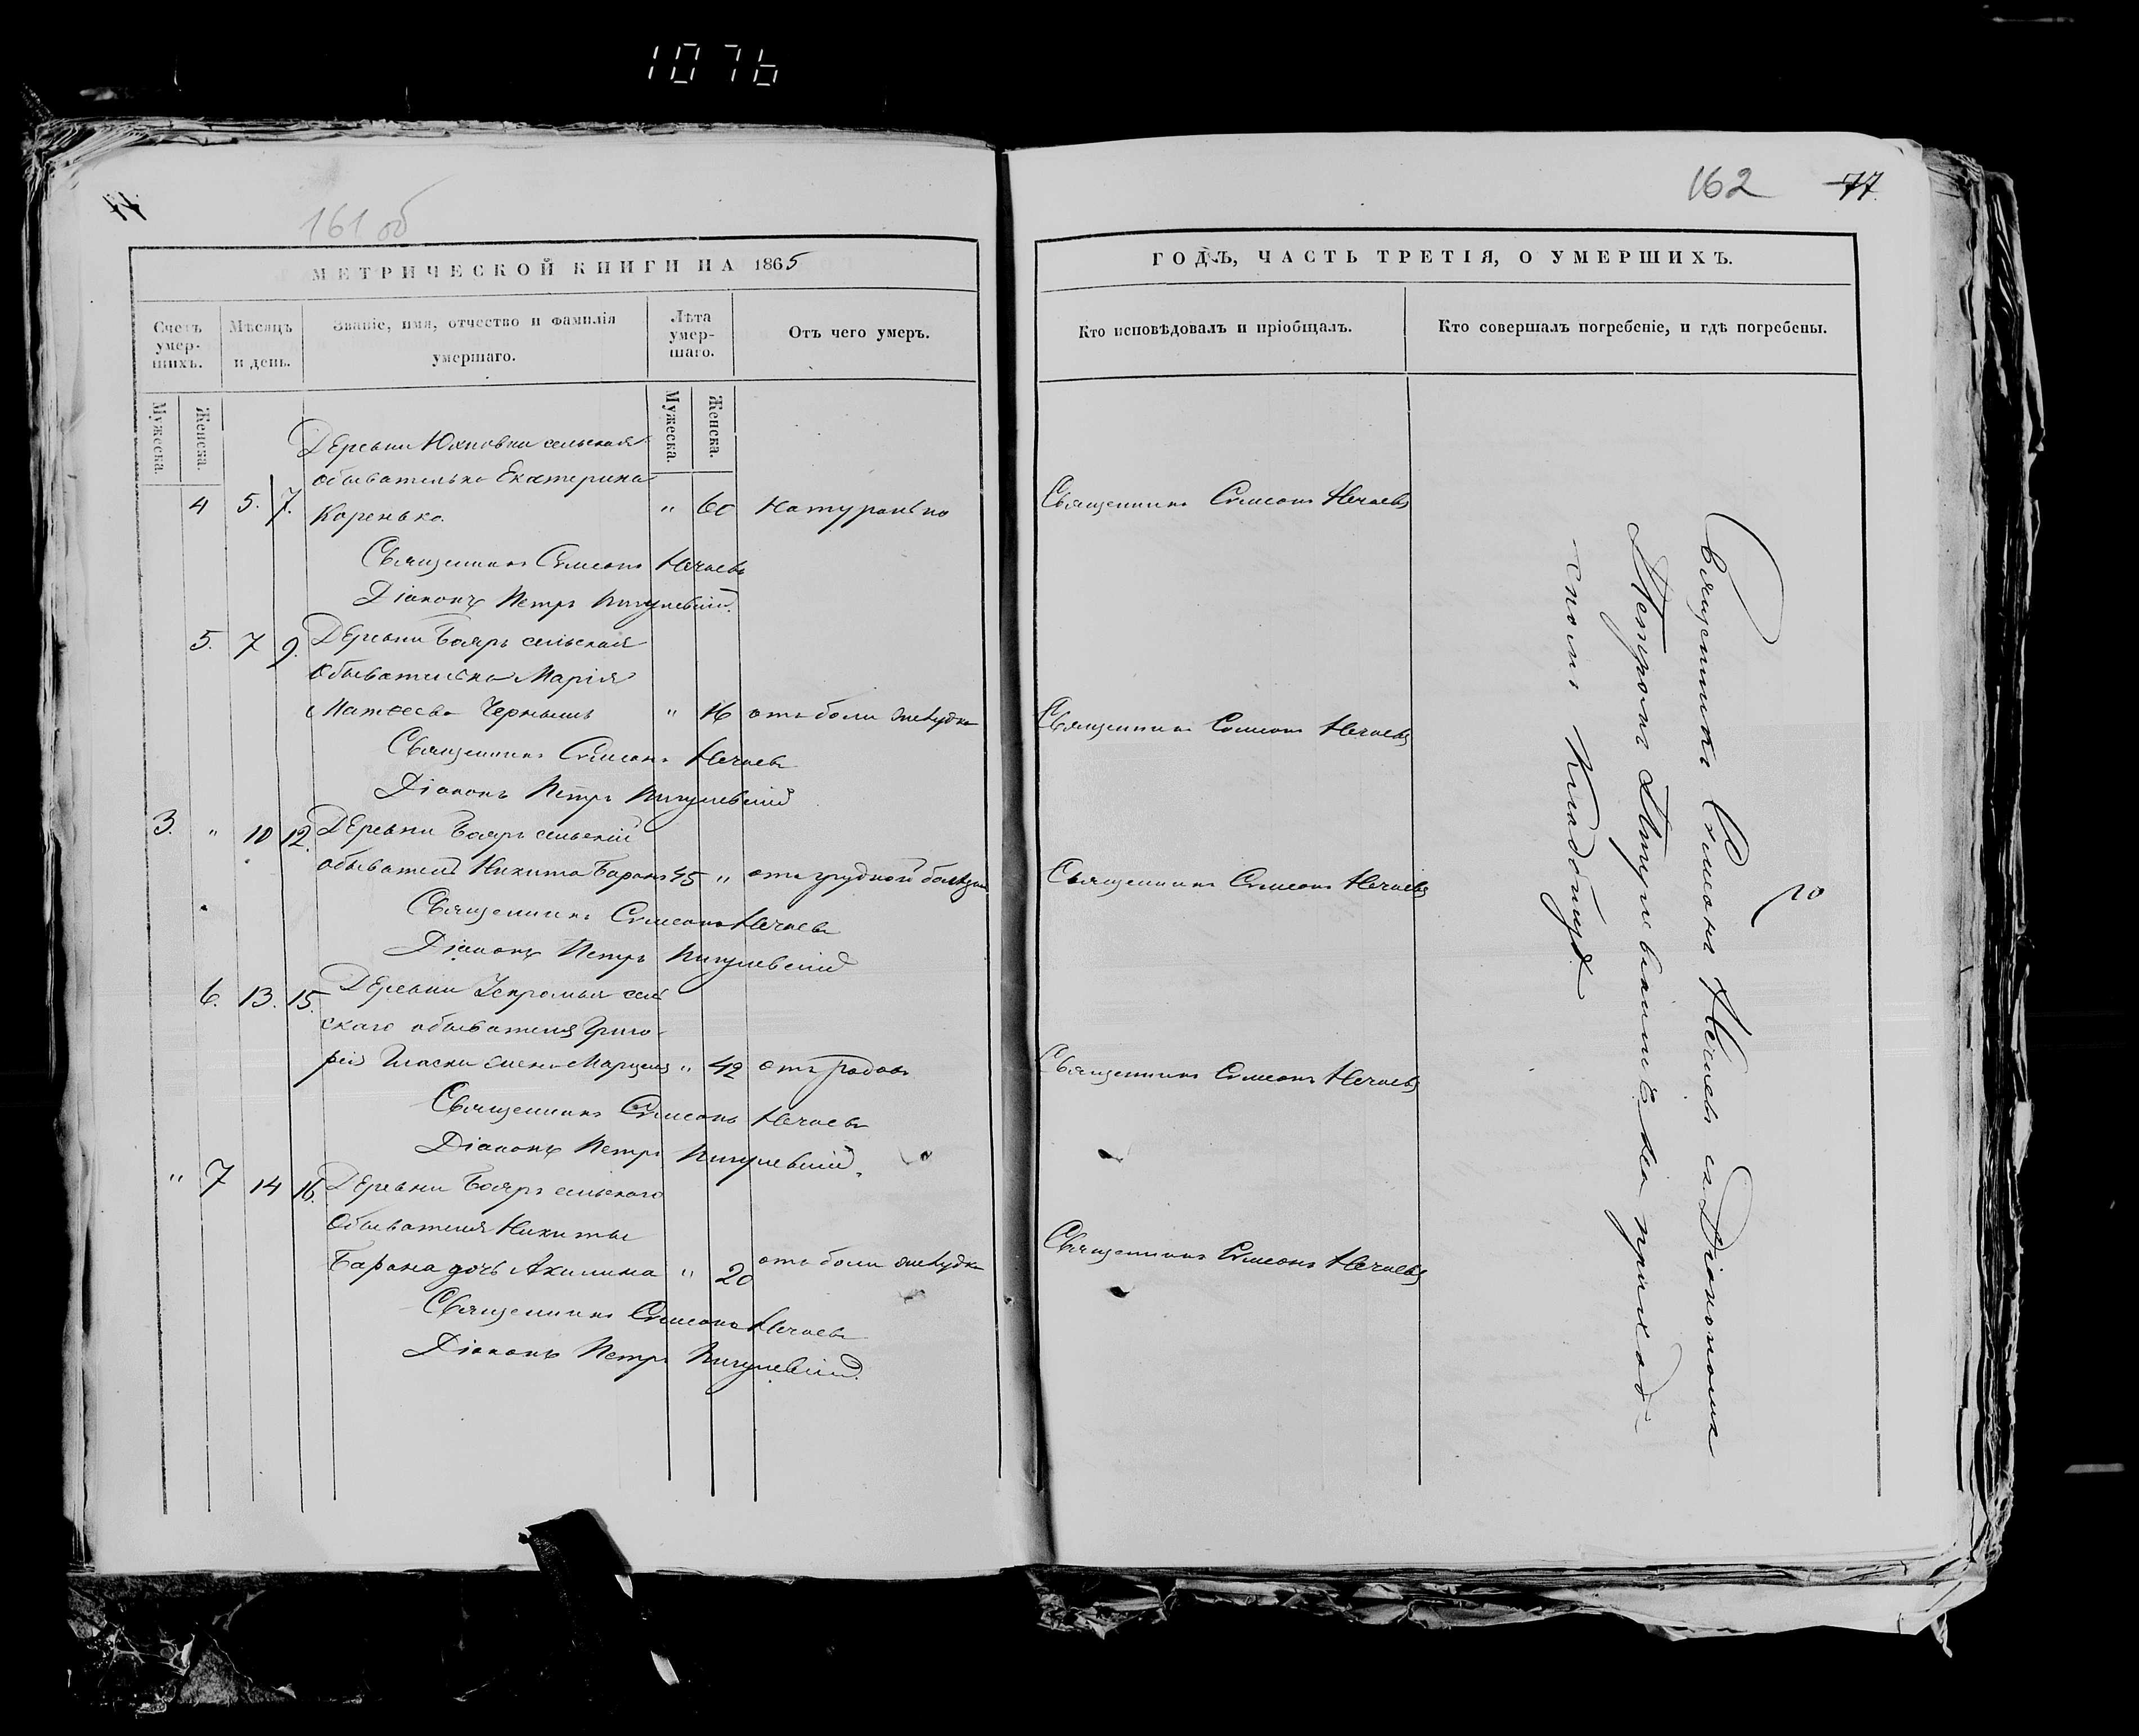 1076
161 об
МЕТРИЧЕСКОЙ КНИГИ НА 1865
Счетъ умер-шихъ.
Мѣсяцъ и день.
Званіе, имя, отчество и фамилія умершаго.
Лѣта умер-шаго.
Отъ чего умеръ.
Мужеска.
Женска.
Мужеска.
Женска.
Деревни Юхновки сельская
обывателька Екатерина
4 5. 7. Коренько " 60 Натурально
Священникъ Симеонъ Нечаевъ
Діаконъ Петръ Пигулевскій.
5. 7 9. Деревни Бояръ сельская
Обывателька Марія
Матѳеева Чернышъ " 16 отъ боли желудка
Священникъ Симеонъ Нечаевъ
Діаконъ Петръ Пигулевскій
3. " 10 12. Деревни Бояръ сельскій
обыватель Никита Баранъ 45 " отъ грудной болезни
Священникъ Симеонъ Нечаевъ
Діаконъ Петръ Пигулевскій
6. 13. 15. Деревни сель
скаго обывателя Григо-
рія жена " 42 отъ родовъ
Священникъ Симеонъ Нечаевъ
Діаконъ Петръ Пигулевскій.
" 7 14 16. Деревни Бояръ сельскаго
Обывателя Никиты
Барана дочь Акилина " 20 отъ боли желудка
Священникъ Симеонъ Нечаевъ
Діаконъ Петръ Пигулевскій.
162 77.
ГОДЪ, ЧАСТЬ ТРЕТІЯ, О УМЕРШИХЪ.
Кто исповѣдовалъ и пріобщалъ.
Кто совершалъ погребеніе, и гдѣ погребены.
Священникъ Симеонъ Нечаевъ
Священникъ Симеонъ Нечаевъ
Священникъ Симеонъ Нечаевъ
Священникъ Симеонъ Нечаевъ
Священникъ Симеонъ Нечаевъ
Священникъ Симеонъ Нечаевъ съ Діакономъ
Петромъ Пигулевскимъ на приход-
скомъ Кладбищѣ